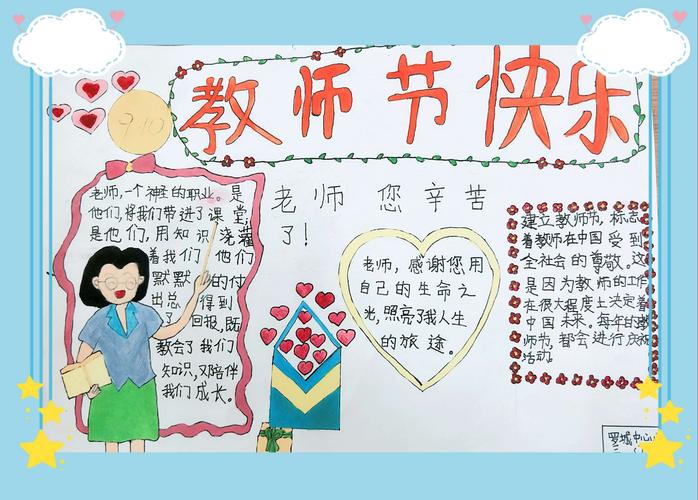 教师节快乐
9.10
老师，一个神圣的职业。是
他们，将我们带进了课堂，
是他们，用知识浇灌
着我们 他们
默默 的付
出总 得到
了 回报，既
教会了我们
知识，又陪伴
我们成长。
老师 您辛苦
了！
老师，感谢您用
自己的生命之
光，照亮了我人生
的旅途。
建立教师节，标志
着教师在中国受到
全社会的尊敬。这
是因为教师的工作
在很大程度上决定着
中国未来。每年的教
师节，都会进行庆祝
活动。
罗城中心